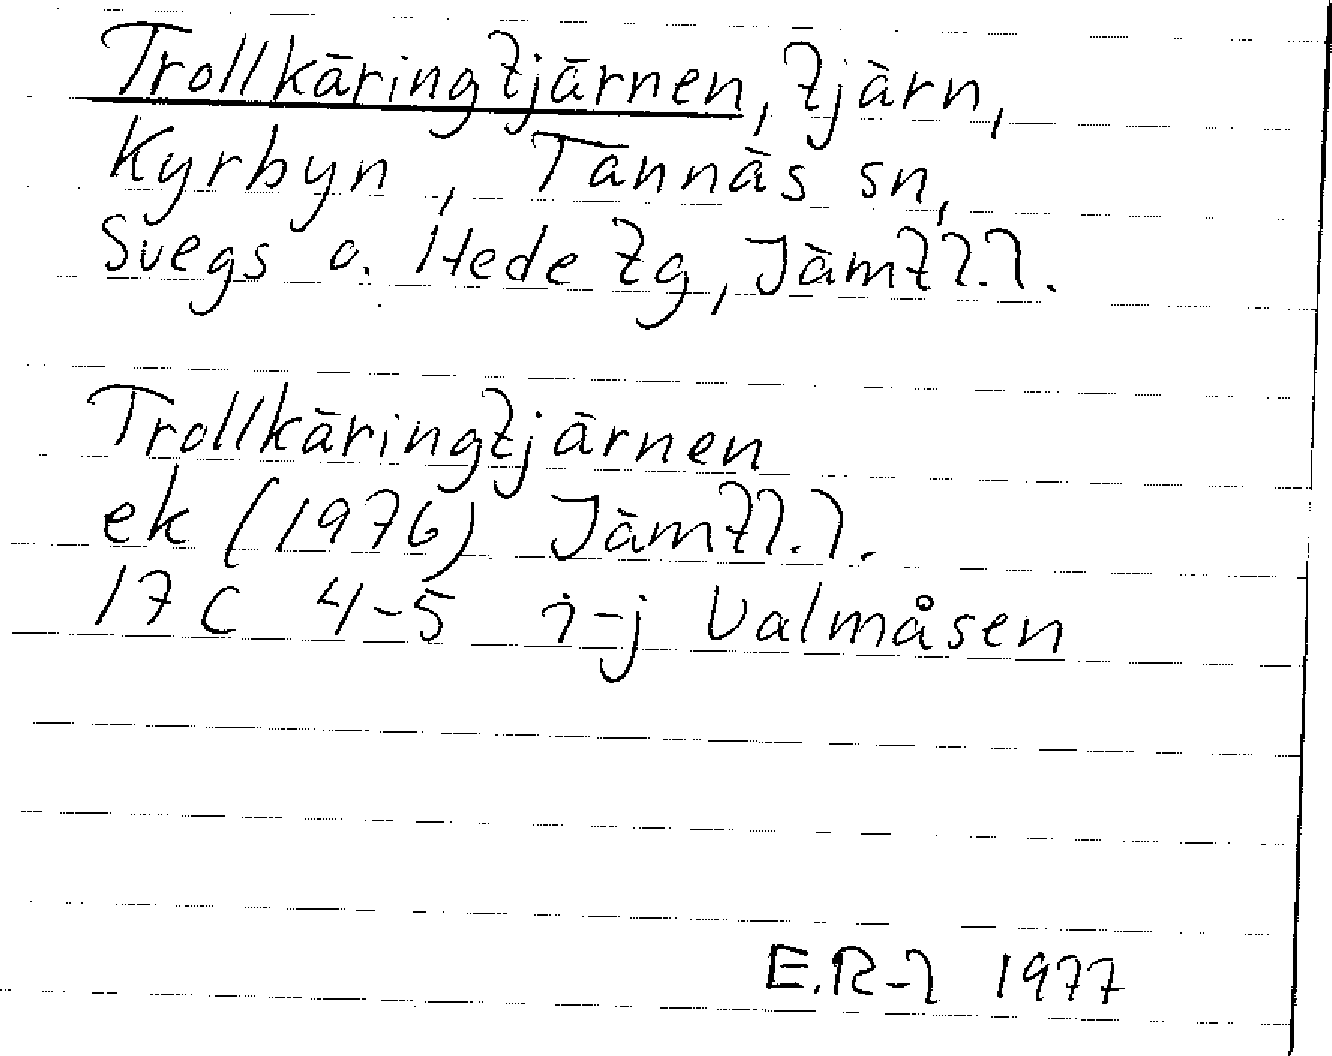 Trollkäringtjärnen, tjärn,
Kyrbyn, Tännäs sn,
Svegs o. Hede tg, Jämtl.l.
Trollkäringtjärnen
ek (1976) Jämtl.l.
17C 4-5 i-j Valmåsen
E.R-l 1977